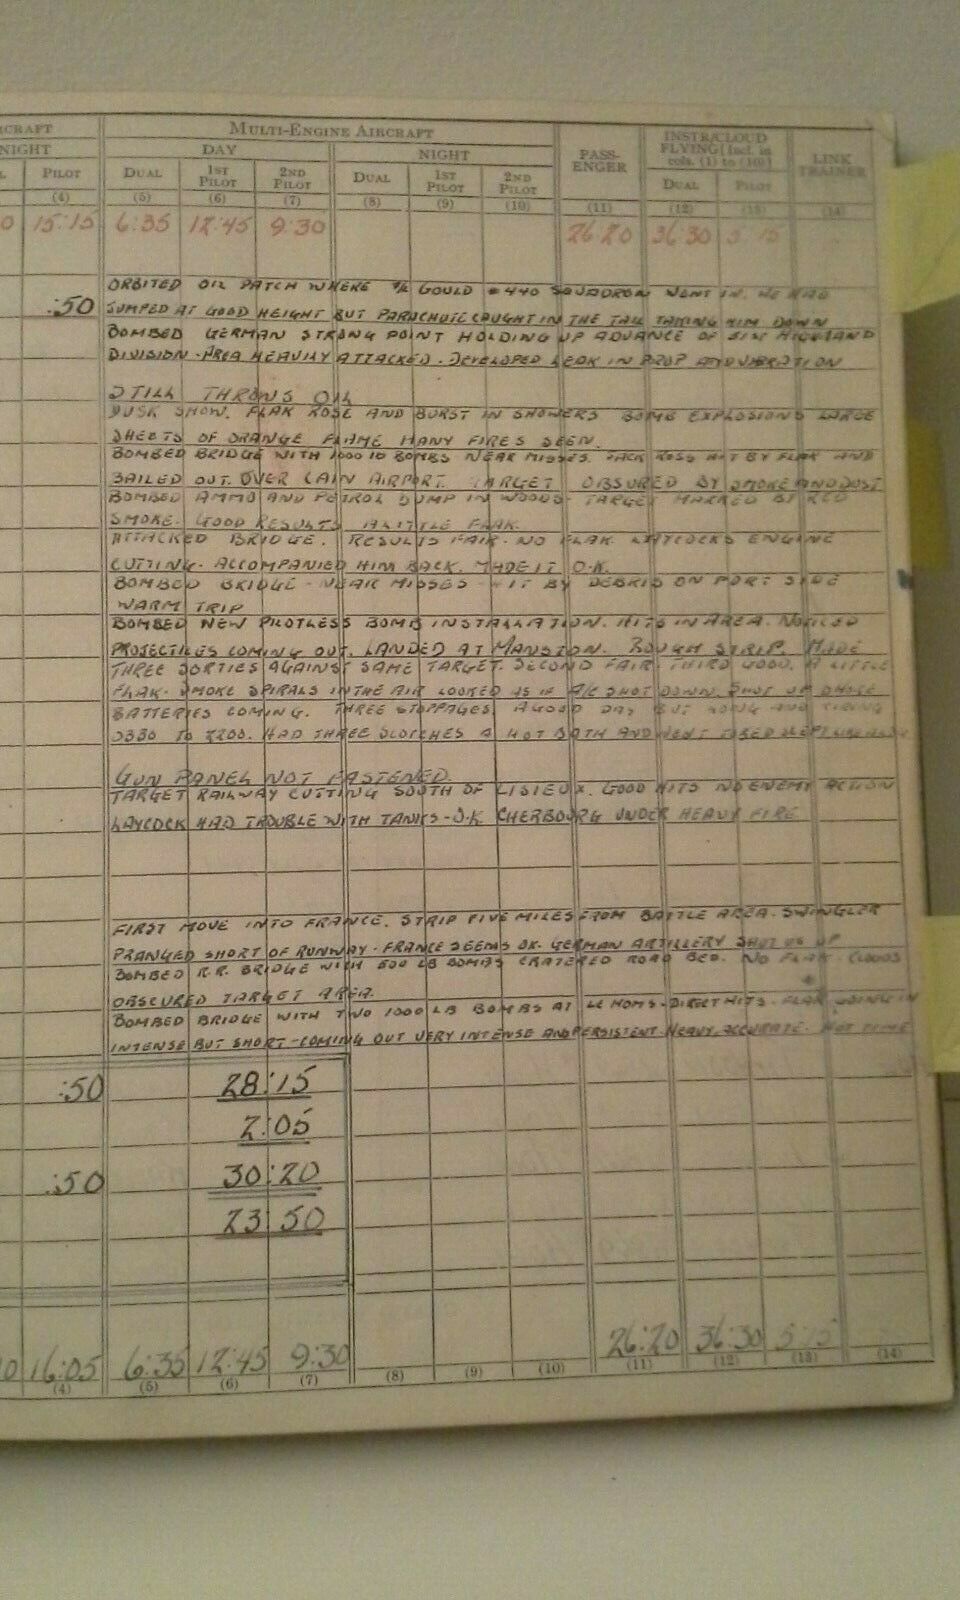 MULTI-ENGINE AIRCRAFT
NIGHT DAY NIGHT PASS-ENGER INSTR/CLOUD FLYING [Incl. in cols. (1) to (10)] LINK TRAINER
PILOT DUAL 1ST PILOT 2ND PILOT DUAL 1ST PILOT 2ND PILOT DUAL PILOT
(4) (5) (6) (7) (8) (9) (10) (11) (12) (13) (14)
15:15 6:35 12:45 9:30 26:20 36:30 5:15
ORBITED OIL PATCH WHERE GOULD 440 SQUADRON WENT IN. HE HAD
:50 JUMPED AT GOOD HEIGHT BUT PARACHUTE CAUGHT IN THE TAIL TAKING HIM DOWN
BOMBED GERMAN STRONG POINT HOLDING UP ADVANCE OF 51ST HIGHLAND
DIVISION - AREA HEAVILY ATTACKED. DEVELOPED LEAK IN PROP AND VIBRATION
STILL THROWS OIL
DUSK SHOW. FLAK ROSE AND BURST IN SHOWERS BOMB EXPLOSIONS LARGE
SHEETS OF ORANGE FLAME MANY FIRES SEEN.
BOMBED BRIDGE WITH 1000 LB BOMBS NEAR MISSES. JACK ROSS HIT BY FLAK AND
BAILED OUT. OVER CAIN AIRPORT. TARGET OBSURED BY SMOKE AND DUST
BOMBED AMMO AND PETROL DUMP IN WOODS - TARGET MARKED BY RED
SMOKE. GOOD RESULTS A LITTLE FLAK.
ATTACKED BRIDGE. RESULTS FAIR. NO FLAK LAYCOCKS ENGINE
CUTTING. ACCOMPANIED HIM BACK. MADE IT O.K.
BOMBED BRIDGE - NEAR MISSES - HIT BY DEBRIS ON PORT SIDE
WARM TRIP
BOMBED NEW PILOTLESS BOMB INSTALLATION. HITS IN AREA. NOTICED
PROJECTILES COMING OUT. LANDED AT MANSTON. ROUGH STRIP. MADE
THREE SORTIES AGAINST SAME TARGET. SECOND FAIR. THIRD GOOD. A LITTLE
FLAK. SMOKE SPIRALS IN THE AIR LOOKED AS IF A/C SHOT DOWN. SHUT UP
BATTERIES COMING. THREE STOPPAGES. A GOOD DAY BUT LONG AND TIRING
0330 TO 2200. HAD THREE SCOTCHES A HOT BATH AND WENT TO BED SLEPT
GUN PANEL NOT FASTENED.
TARGET RAILWAY CUTTING SOUTH OF LISIEUX. GOOD HITS NO ENEMY ACTION
LAYCOCK HAD TROUBLE WITH TANKS - O.K. CHERBOURG UNDER HEAVY FIRE
FIRST MOVE INTO FRANCE. STRIP FIVE MILES FROM BATTLE AREA. SWINGLER
PRANGED SHORT OF RUNWAY - FRANCE SEEMS OK. GERMAN ARTILLERY SHOT US UP
BOMBED R.R. BRIDGE WITH 500 LB BOMBS CRATERED ROAD BED. NO FLAK. CLOUDS
OBSCURED TARGET AREA.
BOMBED BRIDGE WITH TWO 1000 LB BOMBS AT LE HOMS - DIRECT HITS. FLAK GOING IN
INTENSE BUT SHORT - COMING OUT VERY INTENSE AND PERSISTENT. HEAVY, ACCURATE. HOT TIME
:50 28:15
2:05
:50 30:20
23 50
16:05 6:35 12:45 9:30 26:20 36:30 5:15
(4) (5) (6) (7) (8) (9) (10) (11) (12) (13) (14)